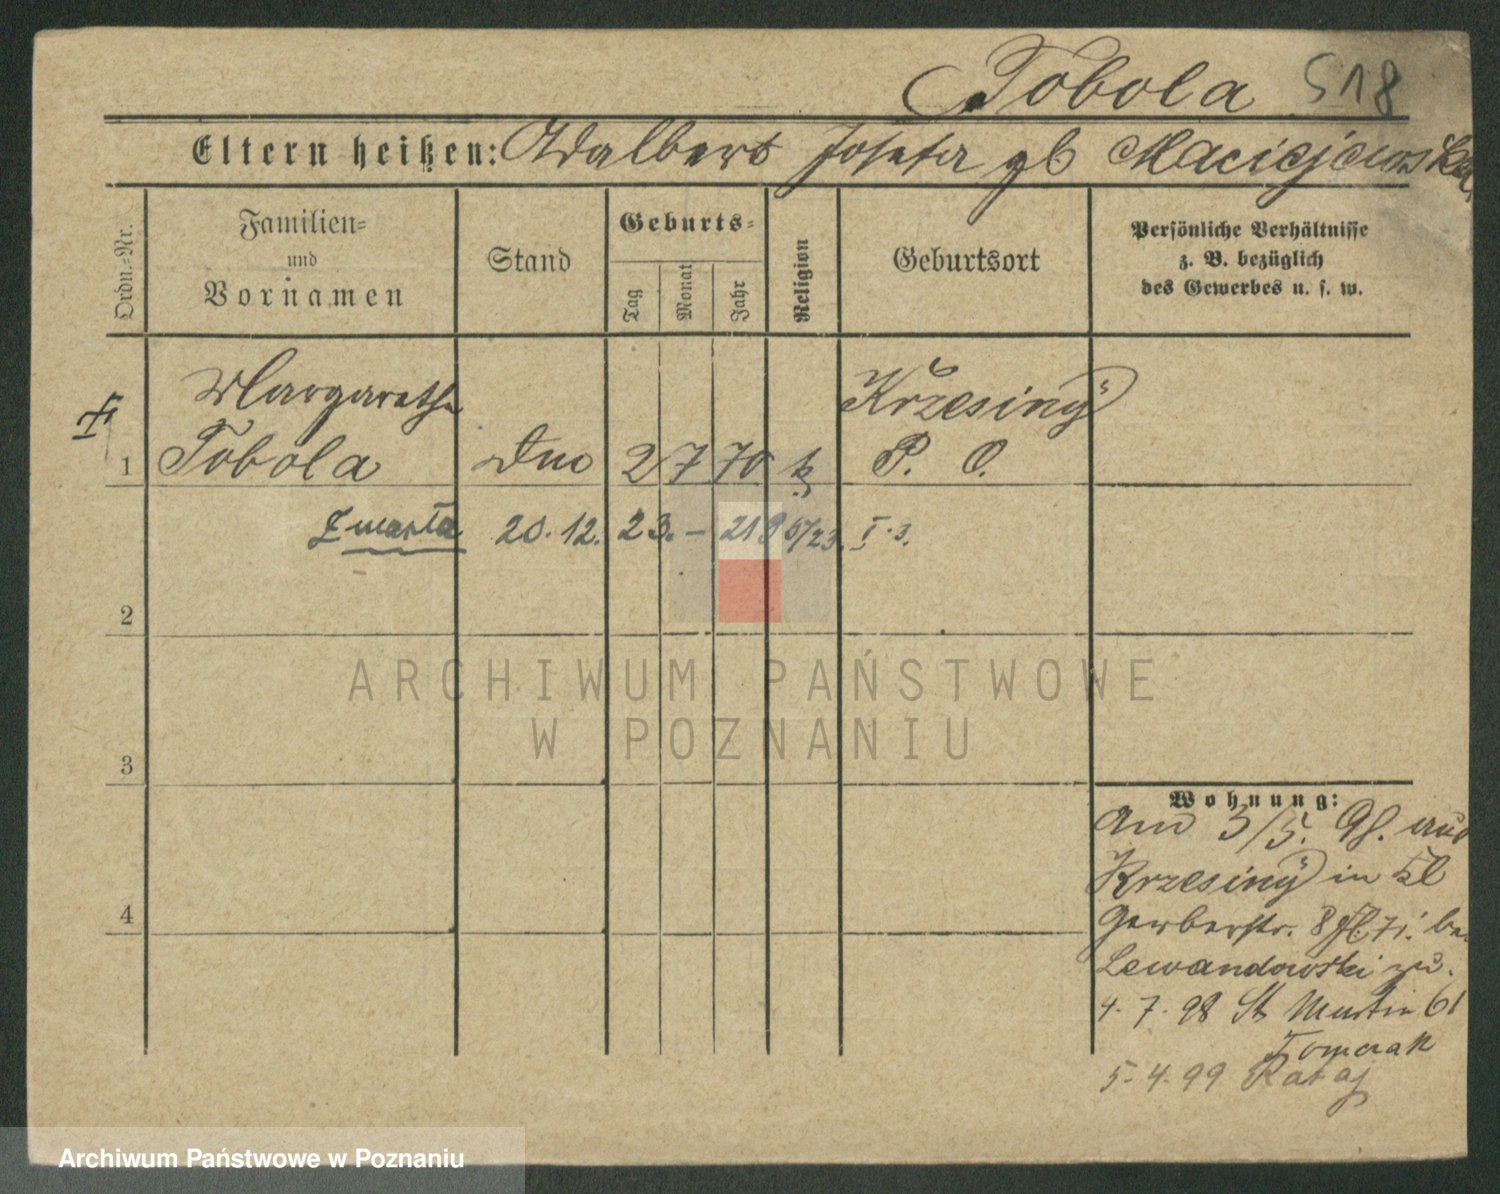 Tobola 518
Eltern heißen: Adalbert Josefa gb Maciejewska
Ordn.-Nr.
Familien- und Vornamen
Stand
Geburts-
Tag
Monat
Jahr
Religion
Geburtsort
Persönliche Verhältnisse
z. B. bezüglich
des Gewerbes u. s. w.
Margarethe
Krzesiny
1 Tobola 2 7 70 k P. O.
Zmarła 20. 12. 23. — 218 /23. I. 3.
2
3
4
Wohnung:
Am 3/5. 98. aus
Krzesiny in
Gerberstr. 8 bei
Lewandowski zu.
4. 7. 98 St Martin 61
Tomczak
5. 4. 99 Rataj
ARCHIWUM PAŃSTWOWE
W POZNANIU
Archiwum Państwowe w Poznaniu